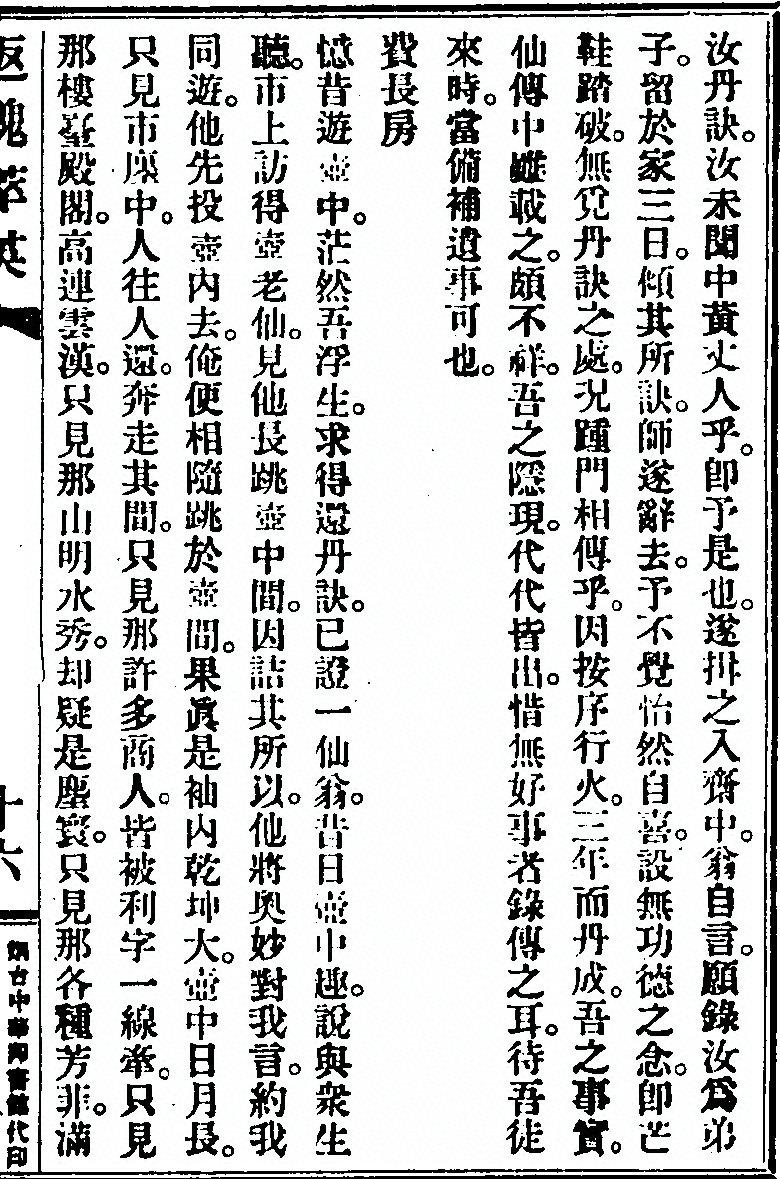 汝丹訣。汝未聞中黃丈人乎。卽予是也。遂拑之入齋中。翁自言。願錄汝爲弟
子。留於家三日。傾其所訣。師遂辭去。予不覺怡然自喜。設無功德之念。卽芒
鞋踏破。無覓丹訣之處。況踵門相傳乎。因按序行火。三年而丹成。吾之事實。
仙傳中雖載之。頗不祥。吾之隱現。代代皆出。惜無好事者錄傳之耳。待吾徒
來時。當備補遺事可也。
費長房
憶昔遊壺中。茫然吾浮生。求得還丹訣。已證一仙翁。昔日壺中趣。說與衆生
聽。市上訪得壺老仙。見他長跳壺中間。因詰其所以。他將奥妙對我言。約我
同遊。他先投壺內去。俺便相隨跳於壺間。果眞是袖內乾坤大。壺中日月長。
只見市廛中。人往人還。奔走其間。只見那許多商人。皆被利字一線牽。只見
那樓臺殿閣。高連雲漢。只見那山明水秀。却疑是塵寰。只見那各種芳菲。滿
返魂萃英
十六
烟台中華印書館代印